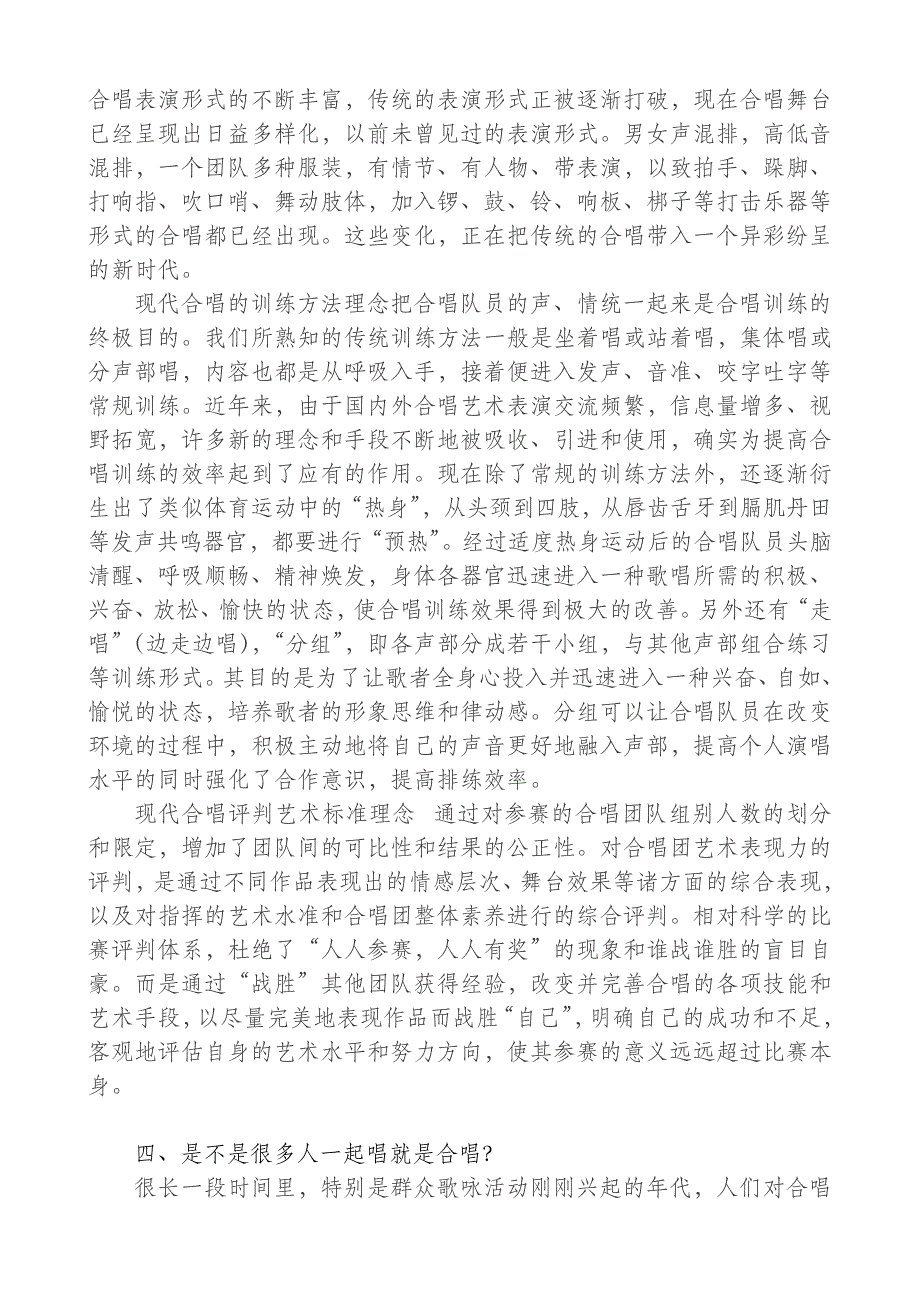 合唱表演形式的不断丰富，传统的表演形式正被逐渐打破，现在合唱舞台
已经呈现出日益多样化，以前未曾见过的表演形式。男女声混排，高低音
混排，一个团队多种服装，有情节、有人物、带表演，以致拍手、跺脚、
打响指、吹口哨、舞动肢体，加入锣、鼓、铃、响板、梆子等打击乐器等
形式的合唱都已经出现。这些变化，正在把传统的合唱带入一个异彩纷呈
的新时代。
现代合唱的训练方法理念把合唱队员的声、情统一起来是合唱训练的
终极目的。我们所熟知的传统训练方法一般是坐着唱或站着唱，集体唱或
分声部唱，内容也都是从呼吸入手，接着便进入发声、音准、咬字吐字等
常规训练。近年来，由于国内外合唱艺术表演交流频繁，信息量增多、视
野拓宽，许多新的理念和手段不断地被吸收、引进和使用，确实为提高合
唱训练的效率起到了应有的作用。现在除了常规的训练方法外，还逐渐衍
生出了类似体育运动中的“热身”，从头颈到四肢，从唇齿舌牙到膈肌丹田
等发声共鸣器官，都要进行“预热”。经过适度热身运动后的合唱队员头脑
清醒、呼吸顺畅、精神焕发，身体各器官迅速进入一种歌唱所需的积极、
兴奋、放松、愉快的状态，使合唱训练效果得到极大的改善。另外还有“走
唱”（边走边唱），“分组”，即各声部分成若干小组，与其他声部组合练习
等训练形式。其目的是为了让歌者全身心投入并迅速进入一种兴奋、自如、
愉悦的状态，培养歌者的形象思维和律动感。分组可以让合唱队员在改变
环境的过程中，积极主动地将自己的声音更好地融入声部，提高个人演唱
水平的同时强化了合作意识，提高排练效率。
现代合唱评判艺术标准理念 通过对参赛的合唱团队组别人数的划分
和限定，增加了团队间的可比性和结果的公正性。对合唱团艺术表现力的
评判，是通过不同作品表现出的情感层次、舞台效果等诸方面的综合表现，
以及对指挥的艺术水准和合唱团整体素养进行的综合评判。相对科学的比
赛评判体系，杜绝了“人人参赛，人人有奖”的现象和谁战谁胜的盲目自
豪。而是通过“战胜”其他团队获得经验，改变并完善合唱的各项技能和
艺术手段，以尽量完美地表现作品而战胜“自己”，明确自己的成功和不足，
客观地评估自身的艺术水平和努力方向，使其参赛的意义远远超过比赛本
身。
四、是不是很多人一起唱就是合唱？
很长一段时间里，特别是群众歌咏活动刚刚兴起的年代，人们对合唱